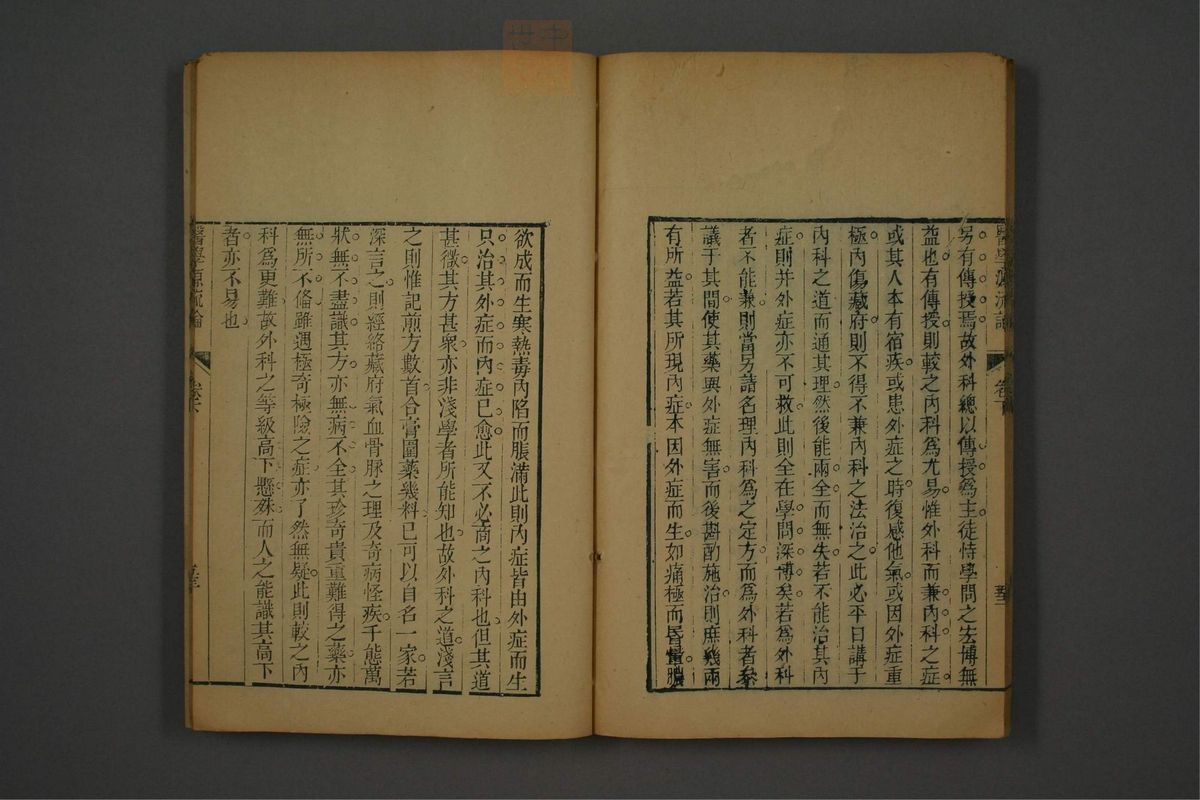 醫學源流論 卷下
另有傳授焉故外科總以傳授爲主徒恃學問之宏博無
益也有傳授則較之內科爲尤易惟外科而兼內科之症
或其人本有宿疾或患外症之時復感他氣或因外症重
極內傷藏府則不得不兼內科之法治之此必平日講于
內科之道而通其理然後能兩全而無失若不能治其內
症則幷外症亦不可救此則全在學問深博矣若爲外科
者不能兼則當另請名理內科爲之定方而爲外科者參
議于其間使其藥與外症無害而後斟酌施治則庶幾兩
有所益若其所現內症本因外症而生如痛極而昏暈膿
欲成而生寒熱毒內陷而脹滿此則內症皆由外症而生
只治其外症而內症已愈此又不必商之內科也但其道
甚微其方甚衆亦非淺學者所能知也故外科之道淺言
之則惟記煎方數首合膏圍藥幾料已可以自名一家若
深言之則經絡藏府氣血骨脈之理及奇病怪疾千態萬
狀無不盡識其方亦無病不全其珍奇貴重難得之藥亦
無所不備雖遇極奇極險之症亦了然無疑此則較之內
科爲更難故外科之等級高下懸殊而人之能識其高下
者亦不易也
醫學源流論 卷下